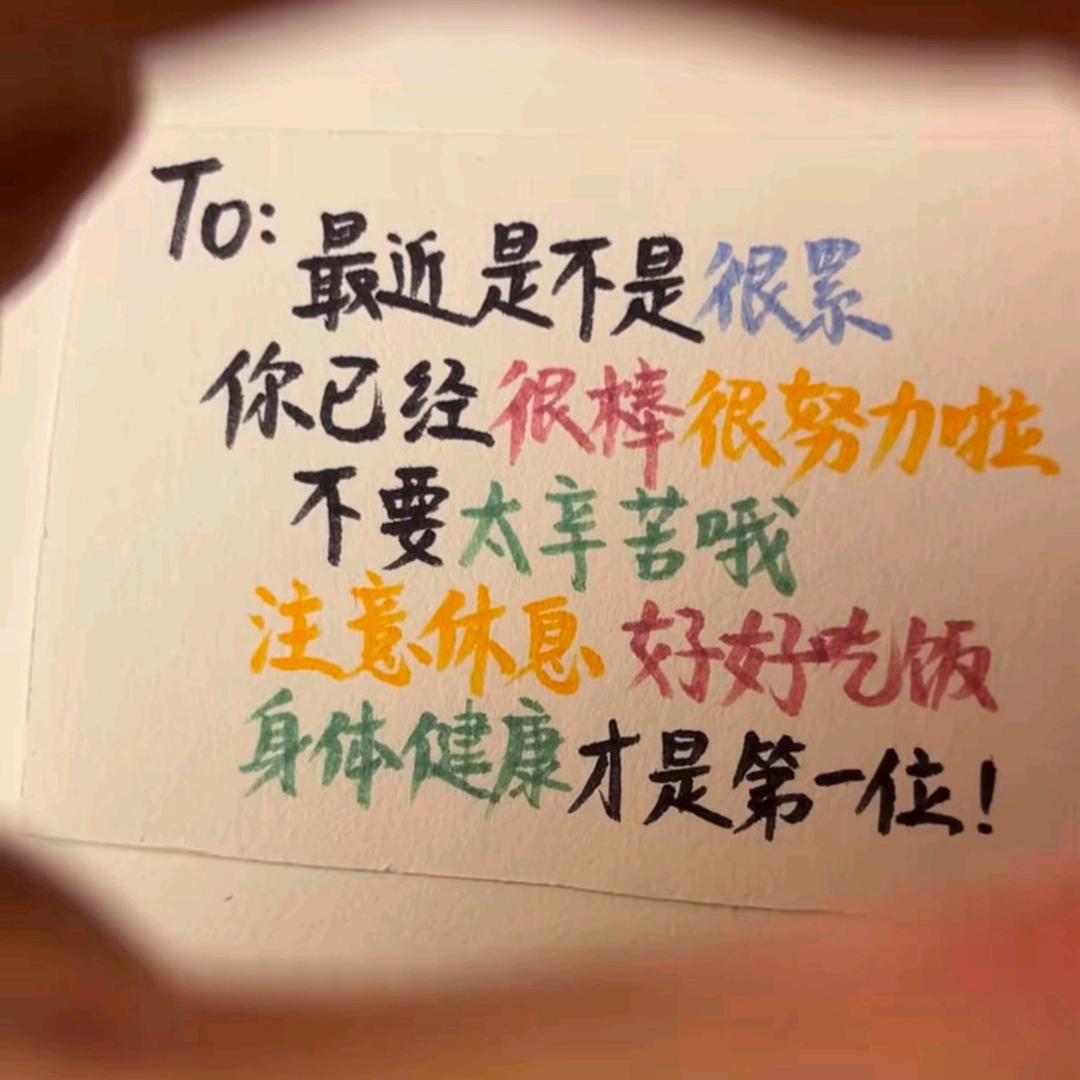 To:
最近是不是很累
你已经很棒很努力啦
不要太辛苦哦
注意休息 好好吃饭
身体健康才是第一位!